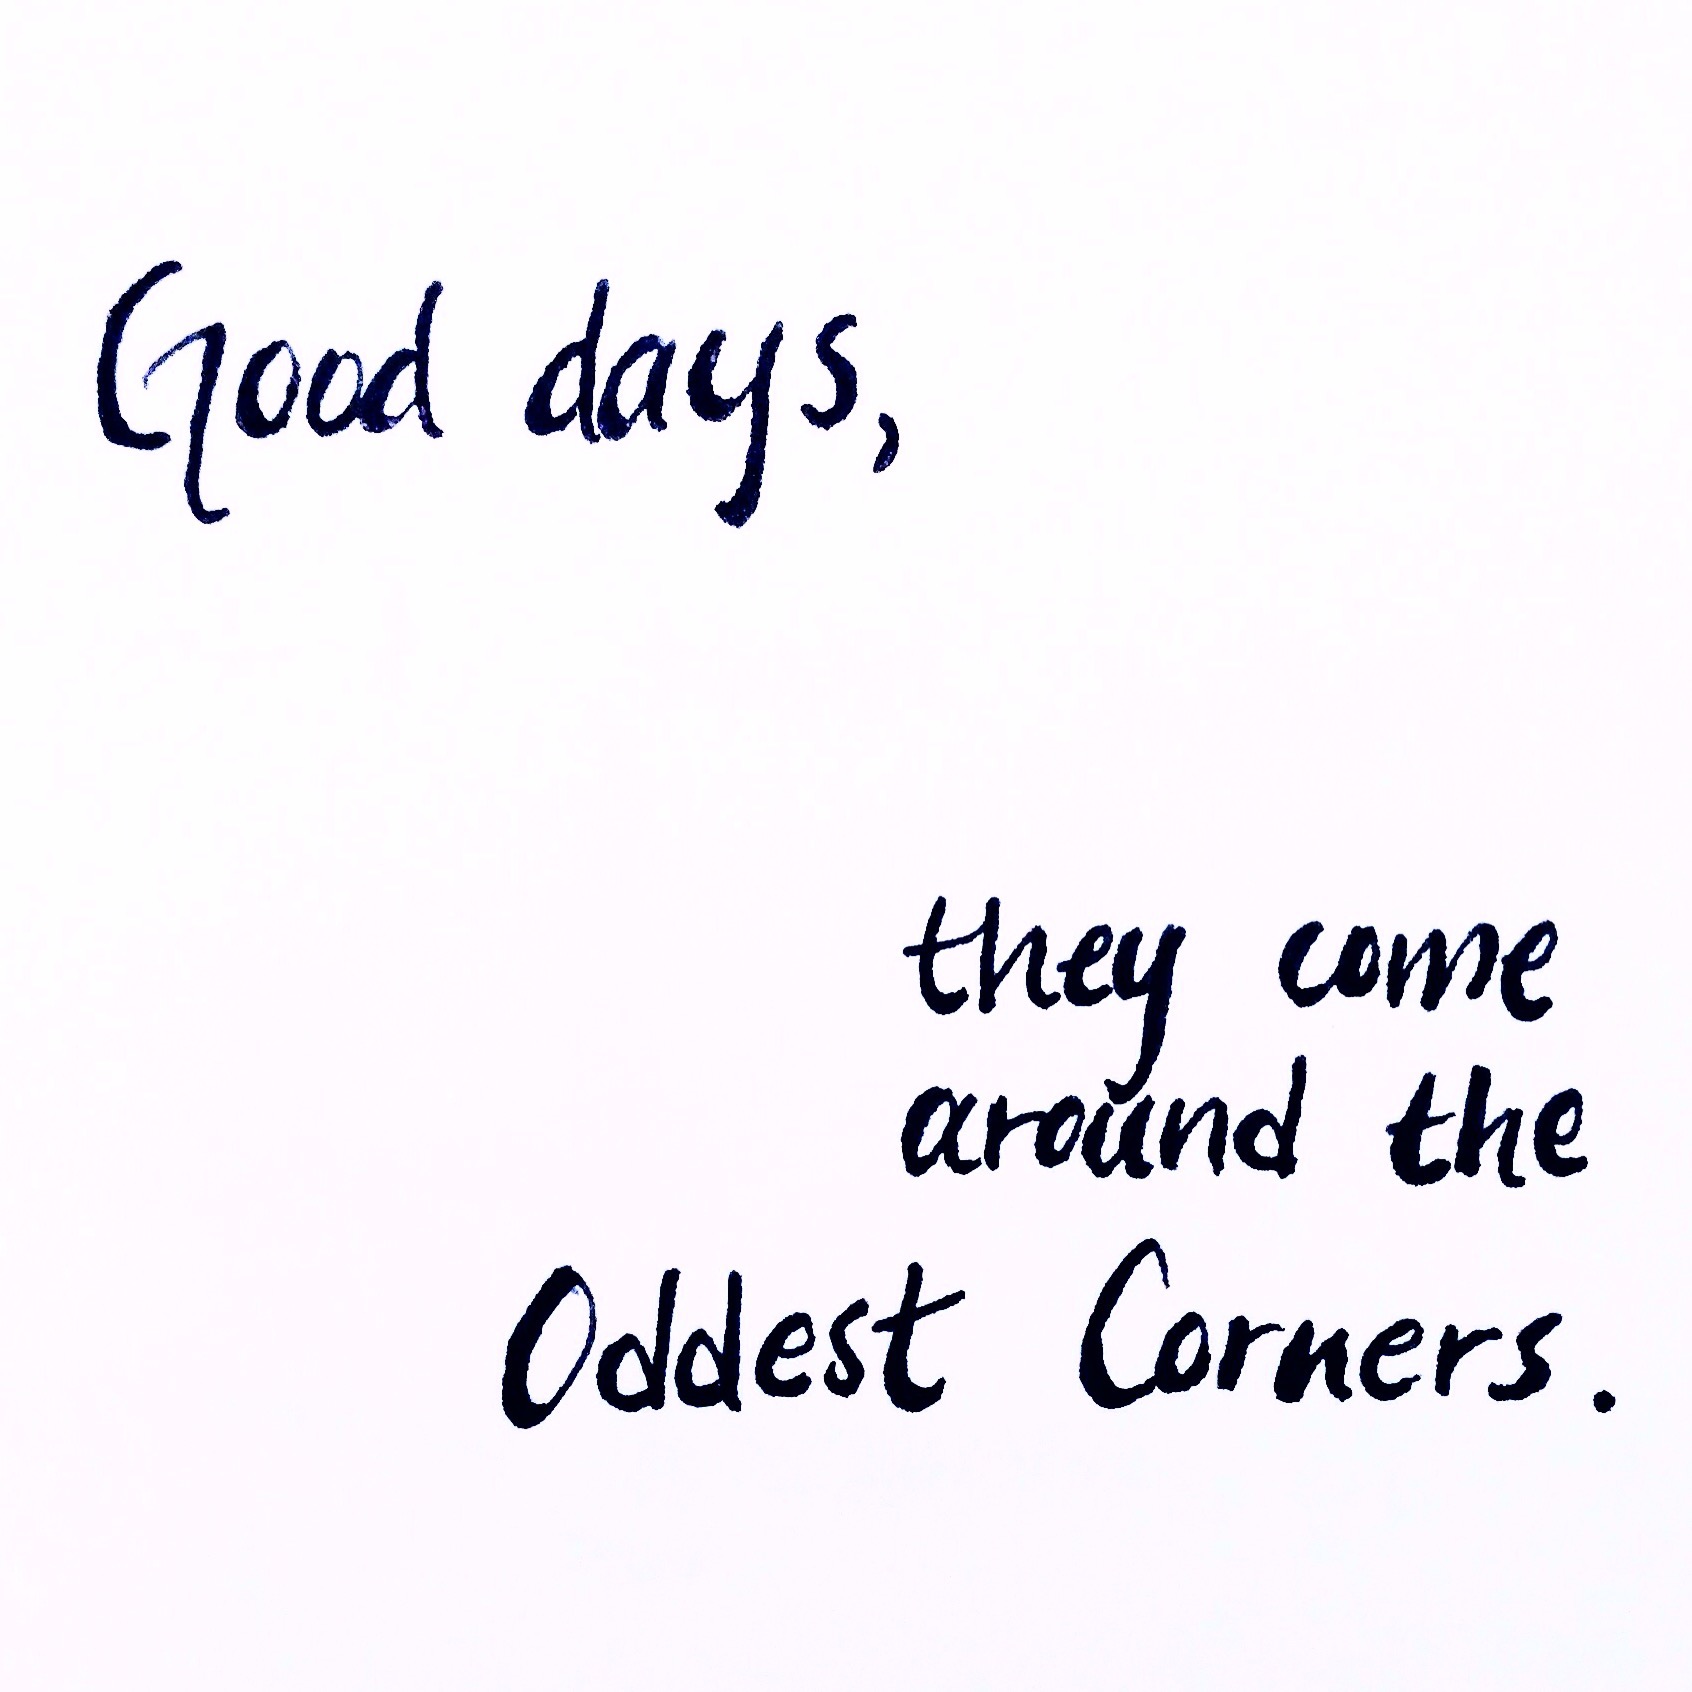 Good days,
they come
around the
Oddest Corners.